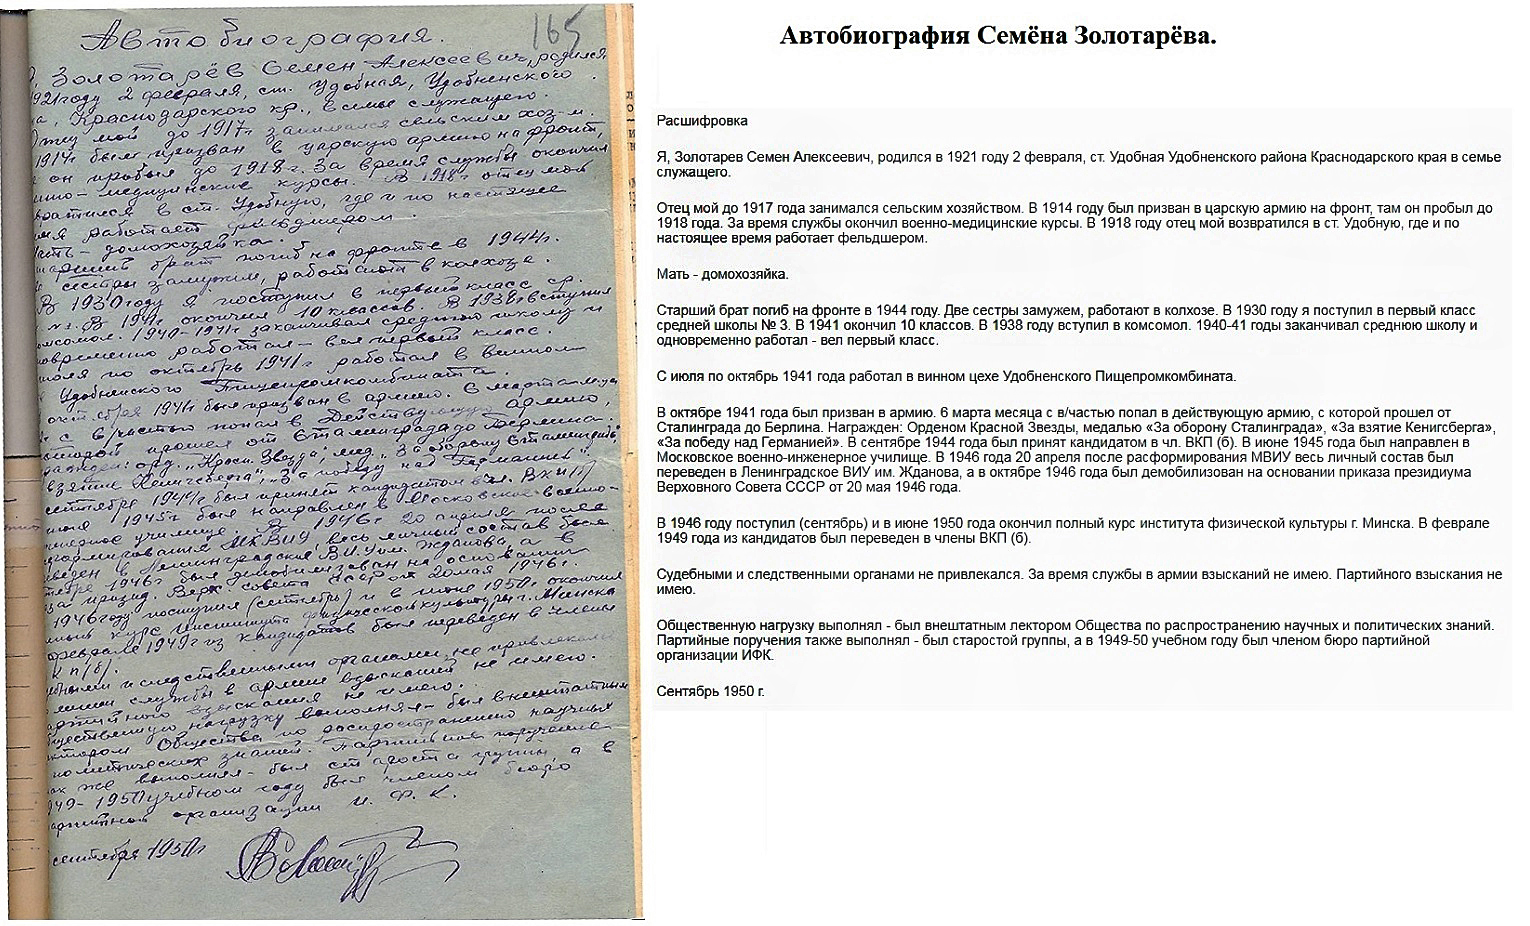 Автобиография.
165
Золотарёв Семен Алексеевич, родился
1921 году 2 февраля, ст. Удобная, Удобненского
Краснодарского кр., в семье служащего.
мой до 1917г занимался сельским хоз-м.
1914г был призван в царскую армию на фронт,
он пробыл до 1918г. За время службы окончил
медицинские курсы. В 1918г отец мой
в ст. Удобную, где и по настоящее
работает фельдшером.
домохозяйка.
брат погиб на фронте в 1944г.
сестры замужем, работают в колхозе.
В 1930 году я поступил в первый класс ср.
В 1941г окончил 10 классов. В 1938г вступил
1940-1941г заканчивал среднюю школу и
работал - вел первый класс.
по октябрь 1941г работал в винном
Удобненского Пищепромкомбината.
1941г был призван в армию. 6 марта м-ца
с в/частью попал в действующую армию,
прошел от Сталинграда до Берлина.
орд. „Красн. Звезда", мед. „За оборону Сталинграда"
взятие Кенигсберга", „За победу над Германией".
1944г был принят кандидатом в чл. ВКП(б)
1945г был направлен в Московское военно-
училище. В 1946г 20 апреля после
МКВИУ весь личный состав был
в Ленинградское В.И.У им. Жданова, а в
1946г был демобилизован на основании
презид. Верх. совета СССР от 20 мая 1946г.
1946 году поступил (сентябрь) и в июне 1950г окончил
курс института физической культуры г. Минска
феврале 1949г из кандидатов был переведен в члены
следственными органами не привлекался
службы в армии взысканий не имею.
взыскания не имею.
нагрузку выполнял - был внештатным
Общества по распространению научных
политических знаний. Партийные поручения
же выполнял - был староста группы, а в
1949-1950 учебном году был членом бюро
организации И.Ф.К.
сентябрь 1950г
Автобиография Семёна Золотарёва.
Расшифровка
Я, Золотарев Семен Алексеевич, родился в 1921 году 2 февраля, ст. Удобная Удобненского района Краснодарского края в семье
служащего.
Отец мой до 1917 года занимался сельским хозяйством. В 1914 году был призван в царскую армию на фронт, там он пробыл до
1918 года. За время службы окончил военно-медицинские курсы. В 1918 году отец мой возвратился в ст. Удобную, где и по
настоящее время работает фельдшером.
Мать - домохозяйка.
Старший брат погиб на фронте в 1944 году. Две сестры замужем, работают в колхозе. В 1930 году я поступил в первый класс
средней школы № 3. В 1941 окончил 10 классов. В 1938 году вступил в комсомол. 1940-41 годы заканчивал среднюю школу и
одновременно работал - вел первый класс.
С июля по октябрь 1941 года работал в винном цехе Удобненского Пищепромкомбината.
В октябре 1941 года был призван в армию. 6 марта месяца с в/частью попал в действующую армию, с которой прошел от
Сталинграда до Берлина. Награжден: Орденом Красной Звезды, медалью «За оборону Сталинграда», «За взятие Кенигсберга»,
«За победу над Германией». В сентябре 1944 года был принят кандидатом в чл. ВКП (б). В июне 1945 года был направлен в
Московское военно-инженерное училище. В 1946 года 20 апреля после расформирования МВИУ весь личный состав был
переведен в Ленинградское ВИУ им. Жданова, а в октябре 1946 года был демобилизован на основании приказа президиума
Верховного Совета СССР от 20 мая 1946 года.
В 1946 году поступил (сентябрь) и в июне 1950 года окончил полный курс института физической культуры г. Минска. В феврале
1949 года из кандидатов был переведен в члены ВКП (б).
Судебными и следственными органами не привлекался. За время службы в армии взысканий не имею. Партийного взыскания не
имею.
Общественную нагрузку выполнял - был внештатным лектором Общества по распространению научных и политических знаний.
Партийные поручения также выполнял - был старостой группы, а в 1949-50 учебном году был членом бюро партийной
организации ИФК.
Сентябрь 1950 г.